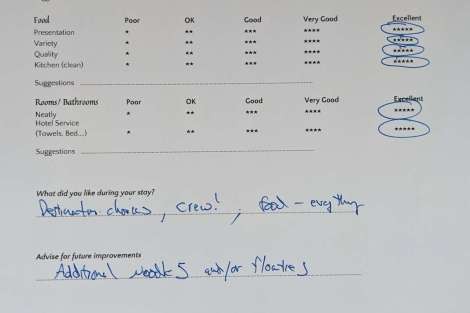 Food Poor OK Good Very Good Excellent
Presentation * ** *** **** *****
Variety * ** *** **** *****
Quality * ** *** **** *****
Kitchen (clean) * ** *** **** *****
Suggestions
Rooms/ Bathrooms Poor OK Good Very Good Excellent
Neatly * ** *** **** *****
Hotel Service
(Towels, Bed...) * ** *** **** *****
Suggestions
What did you like during your stay?
Destination choices, crew!, food - everything
Advise for future improvements
Additional noodles and/or floaties